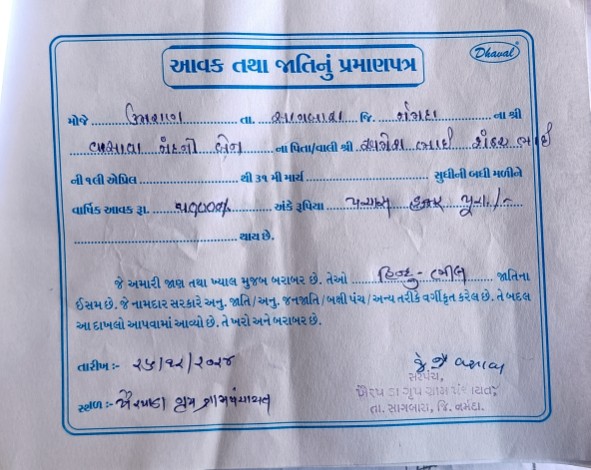 Dhaval
આવક તથા જાતિનું પ્રમાણપત્ર
મોજે ઉભારીયા તા. સાગબારા જિ. નર્મદા ના શ્રી
વસાવા નંદની બેન ના પિતા/વાલી શ્રી રમેશ ભાઇ શંકર ભાઇ
ની ૧લી એપ્રિલ થી ૩૧ મી માર્ચ સુધીની બધી મળીને
વાર્ષિક આવક રૂા. ૫૦૦૦૦/- અંકે રૂપિયા પચાસ હજાર પુરા./-
થાય છે.
જે અમારી જાણ તથા ખ્યાલ મુજબ બરાબર છે. તેઓ હિન્દુ-ભીલ જાતિના
ઈસમ છે. જે નામદાર સરકારે અનુ. જાતિ/અનુ. જનજાતિ/બક્ષી પંચ/અન્ય તરીકે વર્ગીકૃત કરેલ છે. તે બદલ
આ દાખલો આપવામાં આવ્યો છે. તે ખરો અને બરાબર છે.
જે જી વસાવા
તારીખ :- ૨૫/૧૨/૨૦૨૪
સરપંચ,
ગ્રુપ ગ્રામ પંચાયત,
સ્થળ :- ખૈરપાડા ગ્રુપ ગ્રામપંચાયત
તા. સાગબારા, જિ. નર્મદા.